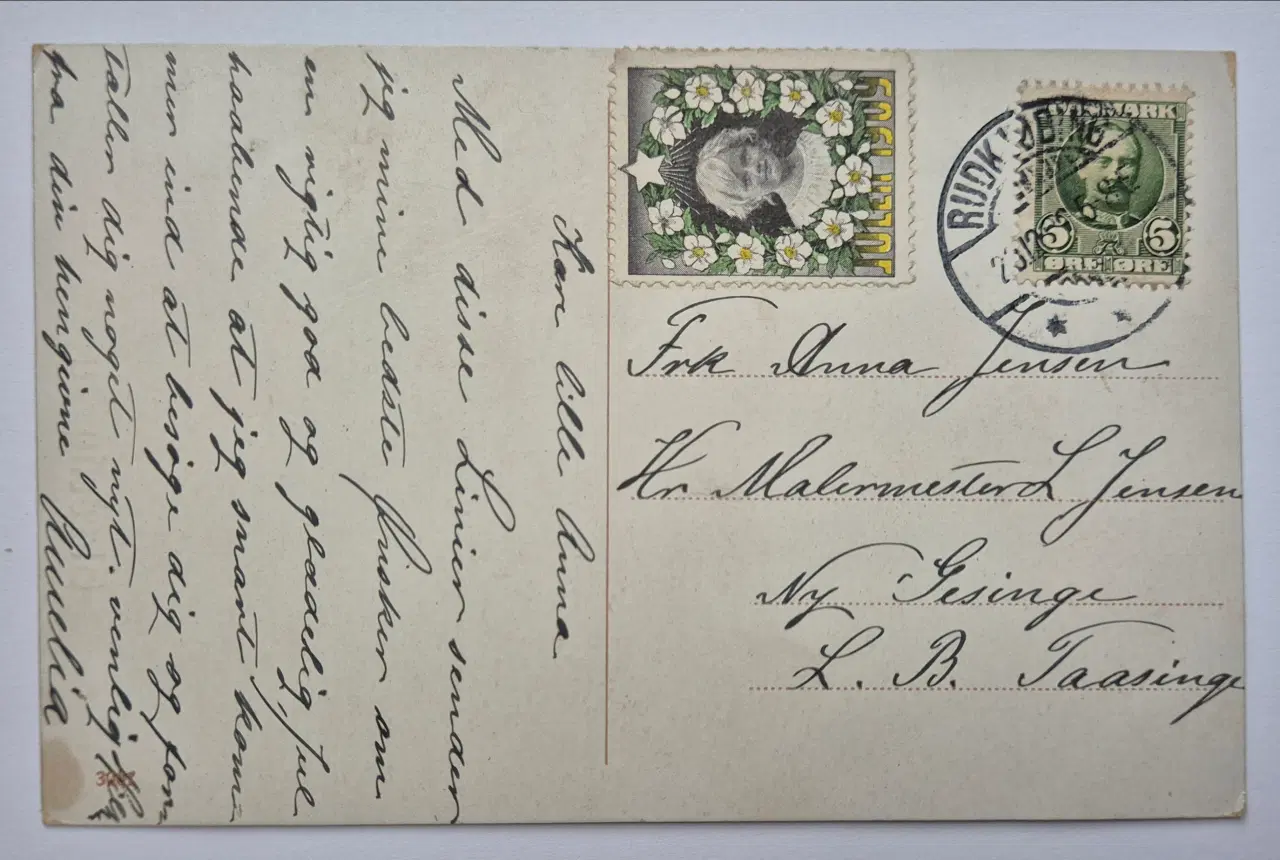 Kære lille Anna
Med disse Linier sender
jeg mine bedste Ønsker om
en rigtig god og glædelig Jul
haabende at jeg snart kom-
mer ind at besøge dig og for-
tæller dig noget nyt. venlig Hils
fra din hengivne Amelia
JULEN 1909
DANMARK
5 5
ØRE ØRE
RUDKJØBING
Frk Anna Jensen
Hr Malermester L Jensen
Ny Gesinge
L. B. Taasinge